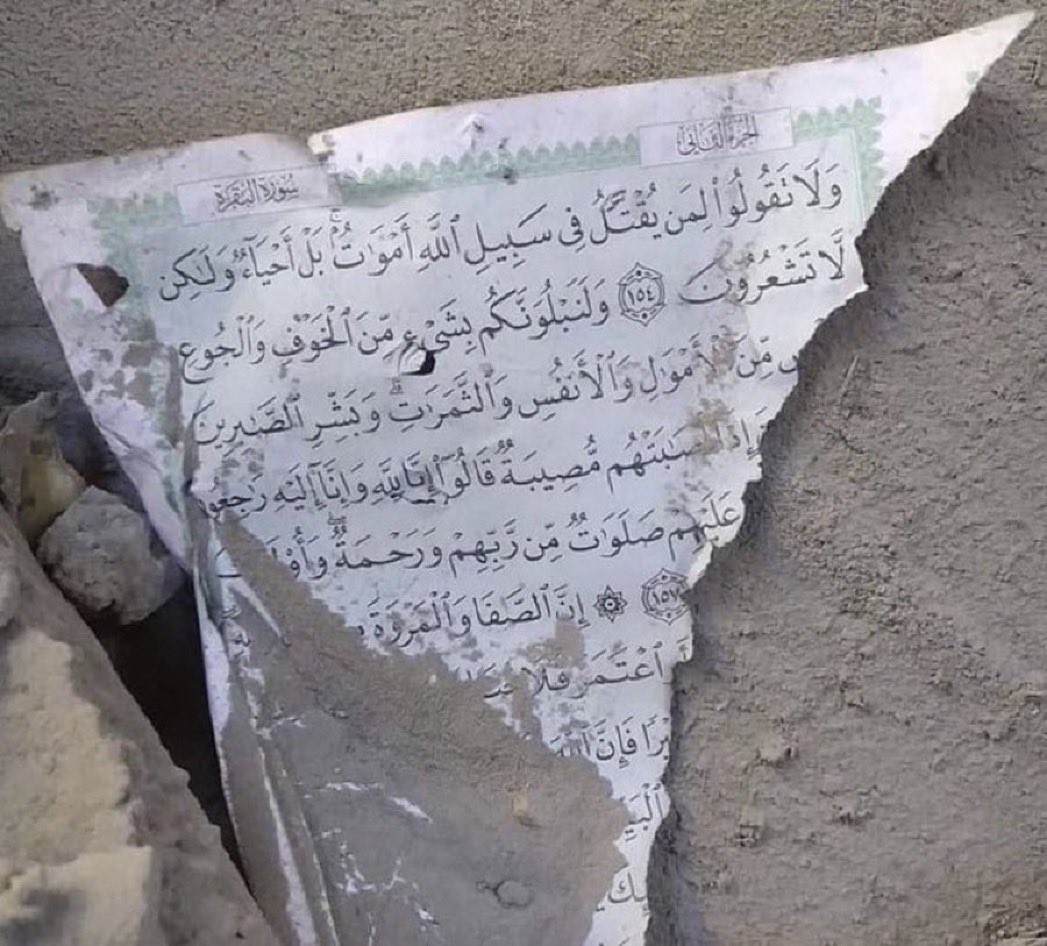 الجزء الثاني
سورة البقرة
وَلَا تَقُولُوا۟ لِمَن يُقْتَلُ فِى سَبِيلِ ٱللَّهِ أَمْوَٰتٌۢ ۚ بَلْ أَحْيَآءٌ وَلَٰكِن
لَّا تَشْعُرُونَ ١٥٤ وَلَنَبْلُوَنَّكُم بِشَىْءٍ مِّنَ ٱلْخَوْفِ وَٱلْجُوعِ
مِّنَ ٱلْأَمْوَٰلِ وَٱلْأَنفُسِ وَٱلثَّمَرَٰتِ ۗ وَبَشِّرِ ٱلصَّٰبِرِينَ
إِذَآ أَصَٰبَتْهُم مُّصِيبَةٌ قَالُوٓا۟ إِنَّا لِلَّهِ وَإِنَّآ إِلَيْهِ رَٰجِعُو
عَلَيْهِمْ صَلَوَٰتٌ مِّن رَّبِّهِمْ وَرَحْمَةٌ ۖ وَأُو
١٥٧ ۞ إِنَّ ٱلصَّفَا وَٱلْمَرْوَةَ
ٱعْتَمَرَ فَلَا
رًا فَإِنَّ ٱللَّهَ
ٱلْبَيِّ